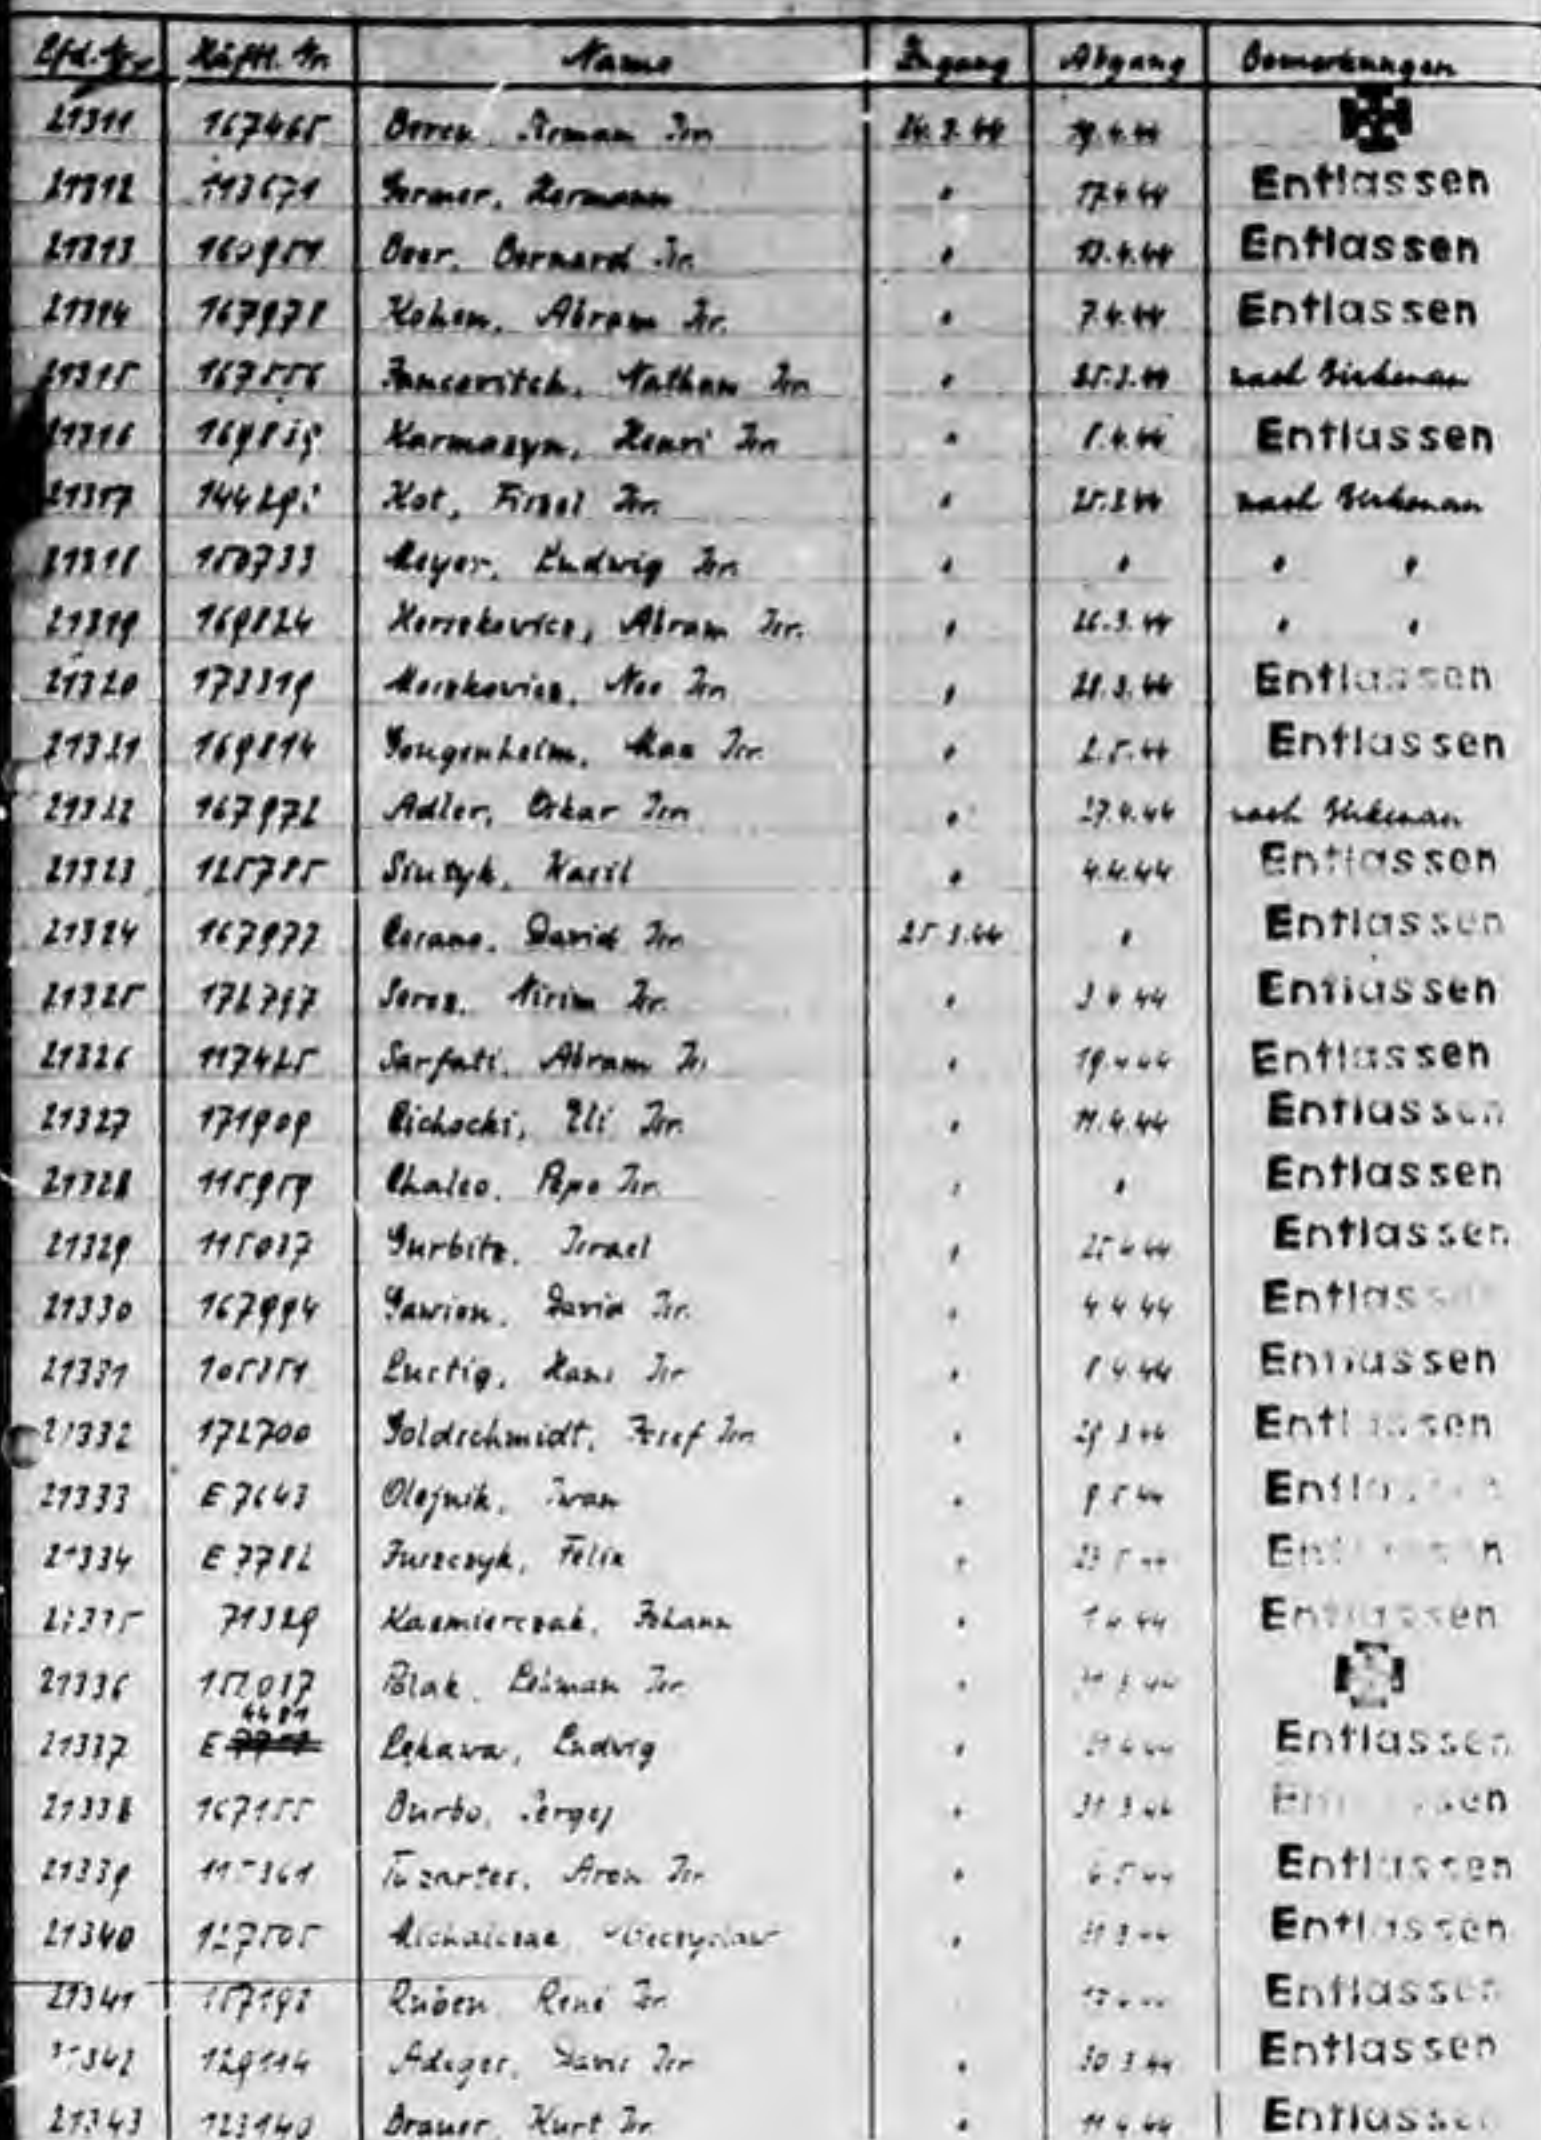 Lfd. Nr. Häftl. Nr. Name Zugang Abgang Bemerkungen
21311 167465 Roman Isr. 24.3.44 19.4.44
21312 113671 Germer, Hermann " 17.4.44 Entlassen
21313 Beer, Bernard Isr. " Entlassen
21314 167978 Kohen, Abram Isr. " 7.4.44 Entlassen
21315 167556 Jancovitch, Nathan Isr. " 25.3.44 nach Birkenau
21316 169839 Karmasyn, Henri Isr. " 8.4.44 Entlassen
21317 Kot, Firzel Isr. " 25.3.44 nach Birkenau
21318 150733 Meyer, Ludwig Isr. " " " "
21319 169824 Herszkowicz, Abram Isr. " 26.3.44 " "
21320 173319 Moszkowicz, Noe Isr. " 28.3.44 Entlassen
21321 169814 Gougenheim, Max Isr. " 2.5.44 Entlassen
21322 167972 Adler, Oskar Isr. " 27.4.44 nach Birkenau
21323 125785 Sintyk, Wasil " 4.4.44 Entlassen
21324 167977 David Isr. 25.3.44 " Entlassen
21325 172797 Isr. " 3.4.44 Entlassen
21326 117425 Sarfati, Abram Is. " 19.4.44 Entlassen
21327 171909 Cichocki, Eli Isr. " 11.4.44 Entlassen
21328 115959 Chaleo, Pepo Isr. " " Entlassen
21329 115037 Gurbitz, Israel " 25.4.44 Entlassen
21330 167994 Gawion, David Isr. " 4.4.44 Entlassen
21331 105351 Lustig, Hans Isr " 8.4.44 Entlassen
21332 172700 Goldschmidt, Josef Isr. " 29.3.44 Entlassen
21333 E 7643 Olejnik, Iwan " 9.5.44 Entlassen
21334 E 7782 Juszczyk, Felix " 23.5.44 Entlassen
21335 71329 Kazmierczak, Johann " 1.4.44 Entlassen
21336 Polak, Isr. "
4481
21337 E Lękawa, Ludwig " Entlassen
21338 167155 Burbo, Sergej " 31.3.44 Entlassen
21339 Aron Isr. " Entlassen
21340 127505 " Entlassen
21341 Ruben René Isr. Entlassen
21342 129114 Isr. " 30.3.44 Entlassen
21343 123140 Brauer, Kurt Isr. " 11.4.44 Entlassen